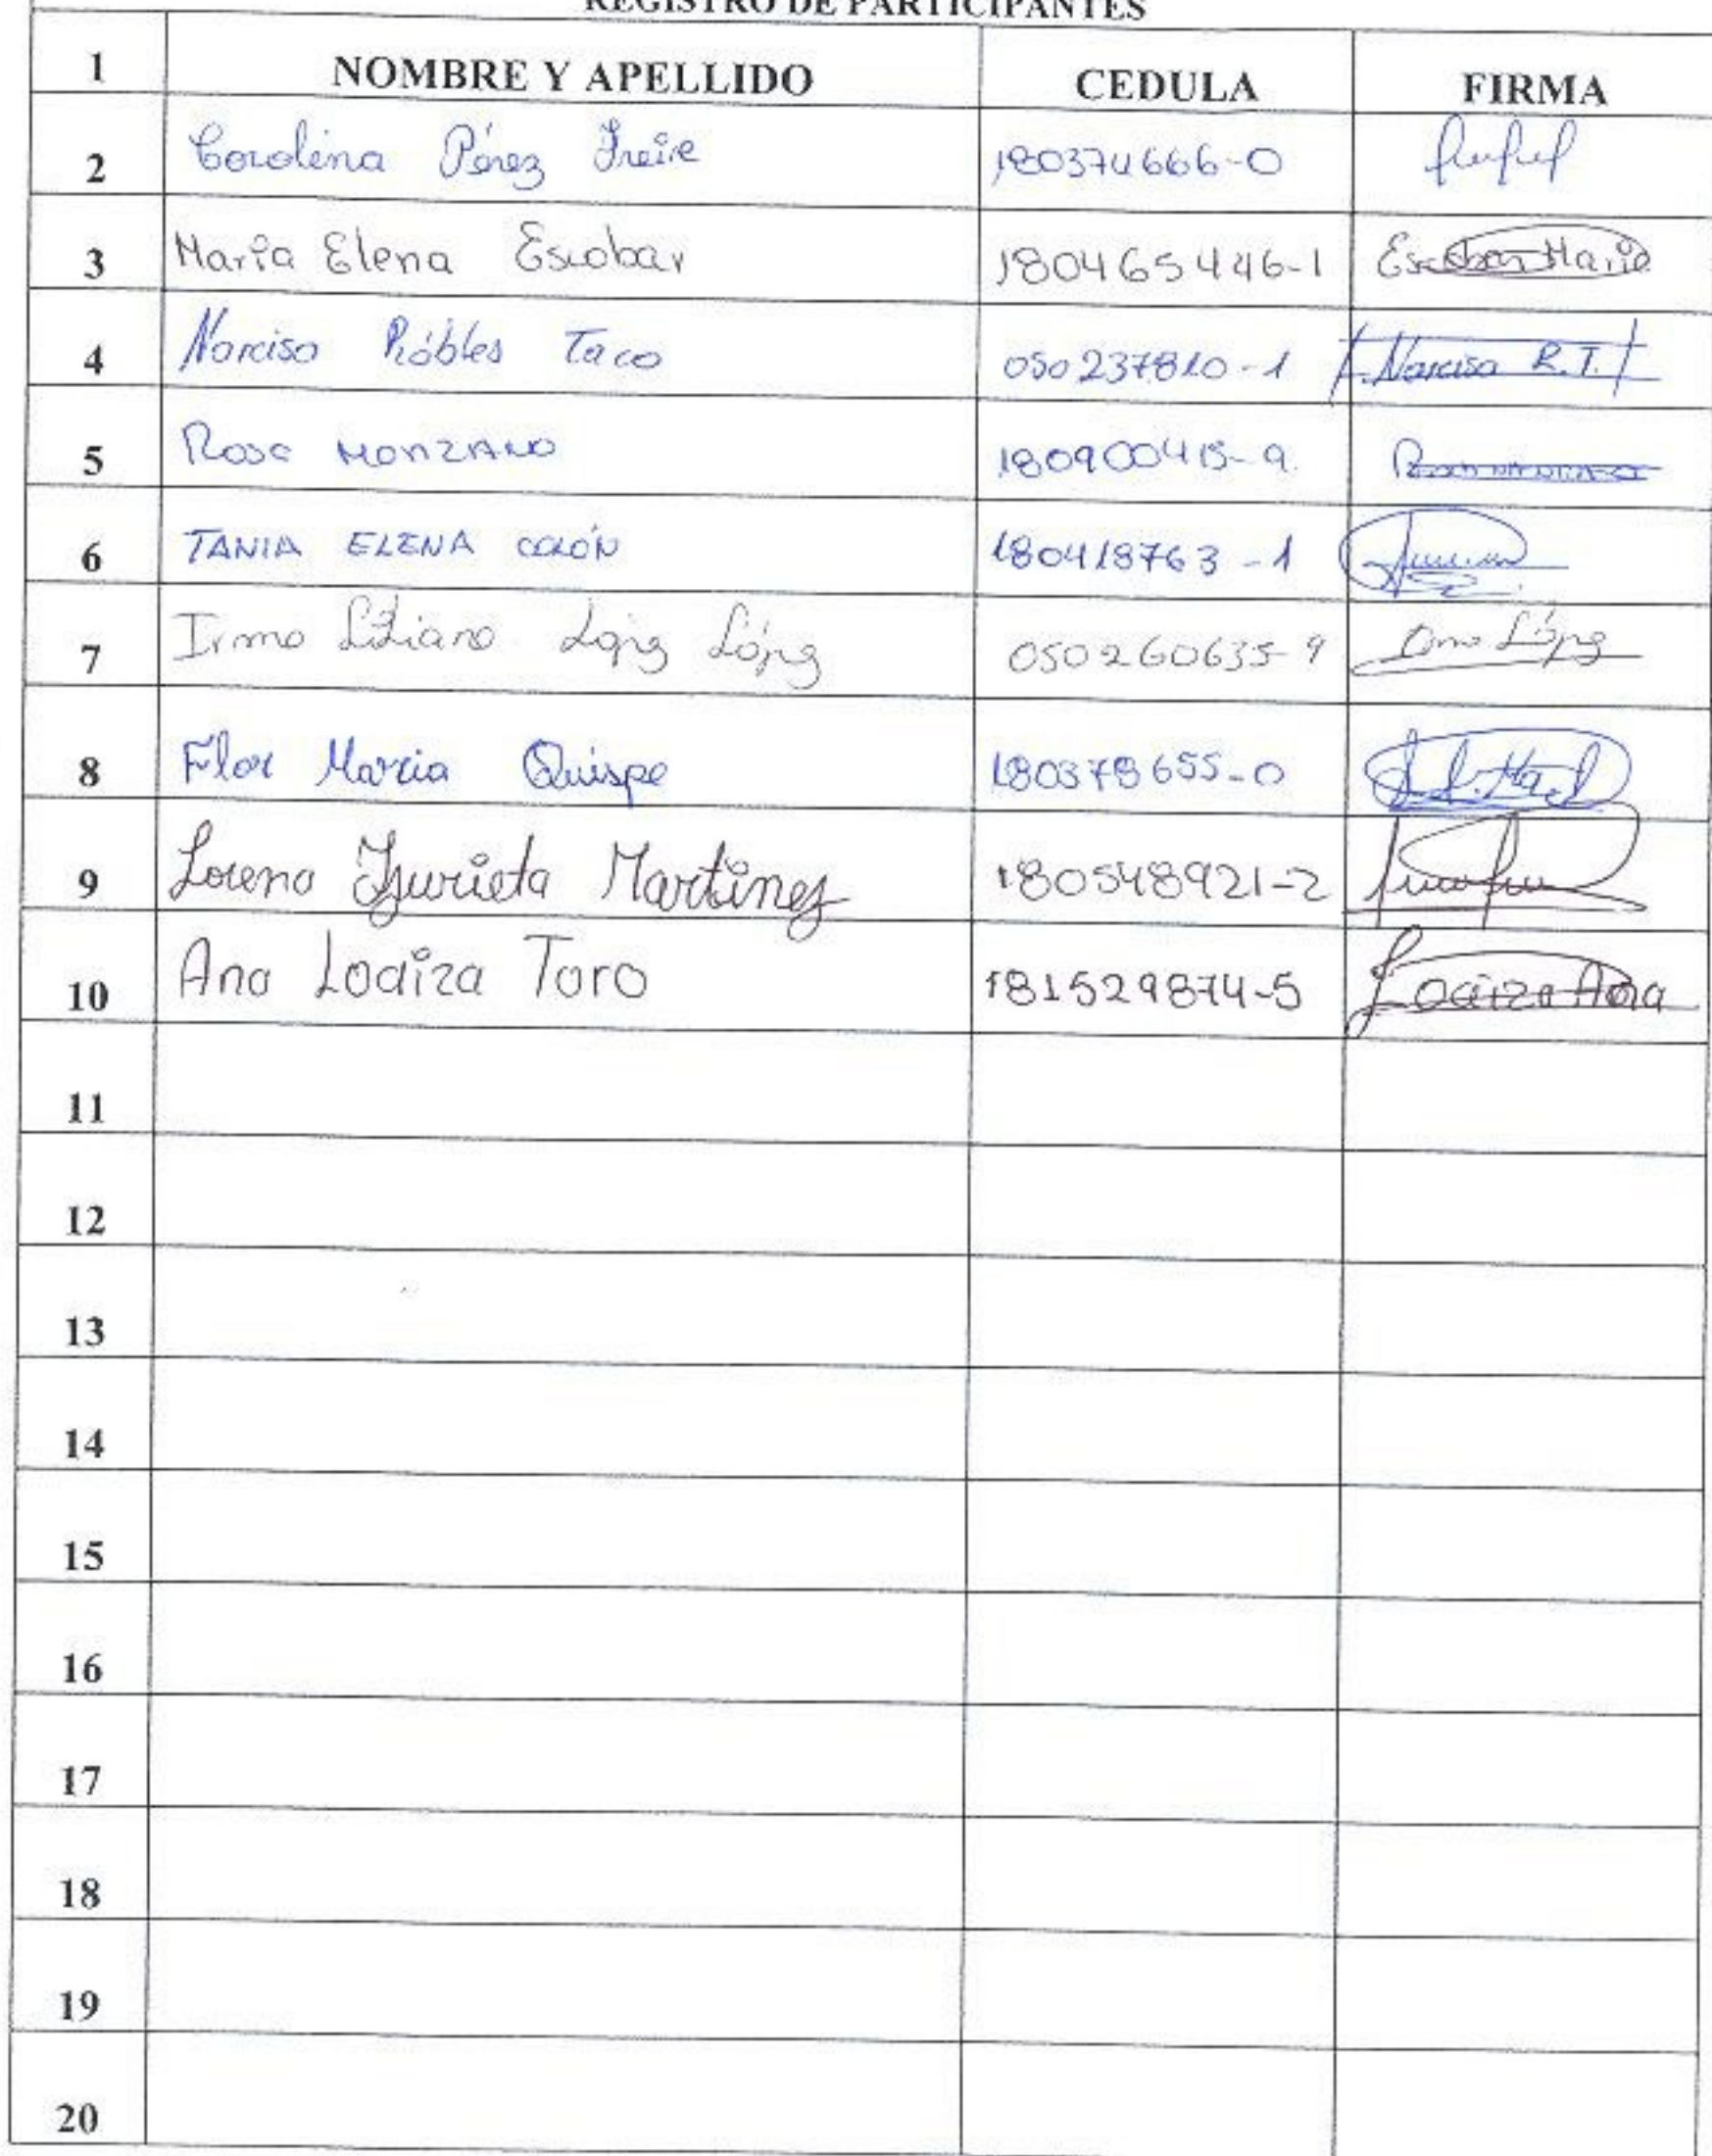 REGISTRO DE PARTICIPANTES
1 NOMBRE Y APELLIDO CEDULA FIRMA
2 Carolina Pérez Freire 180374666-0
3 María Elena Escobar 180465446-1 Escobar Maria
4 Narcisa Róbles Taco 050237810-1 Narcisa R.T.
5 Rosa MONZANO 180900415-9
6 TANIA ELENA COLÓN 180418763-1
7 Irma Liliana López López 050260635-9 López
8 Flor Maria Quispe 180378655-0
9 Lorena Izurieta Martinez 180548921-2
10 Ana Loaiza Toro 181529874-5 Loaiza Ana
11
12
13
14
15
16
17
18
19
20